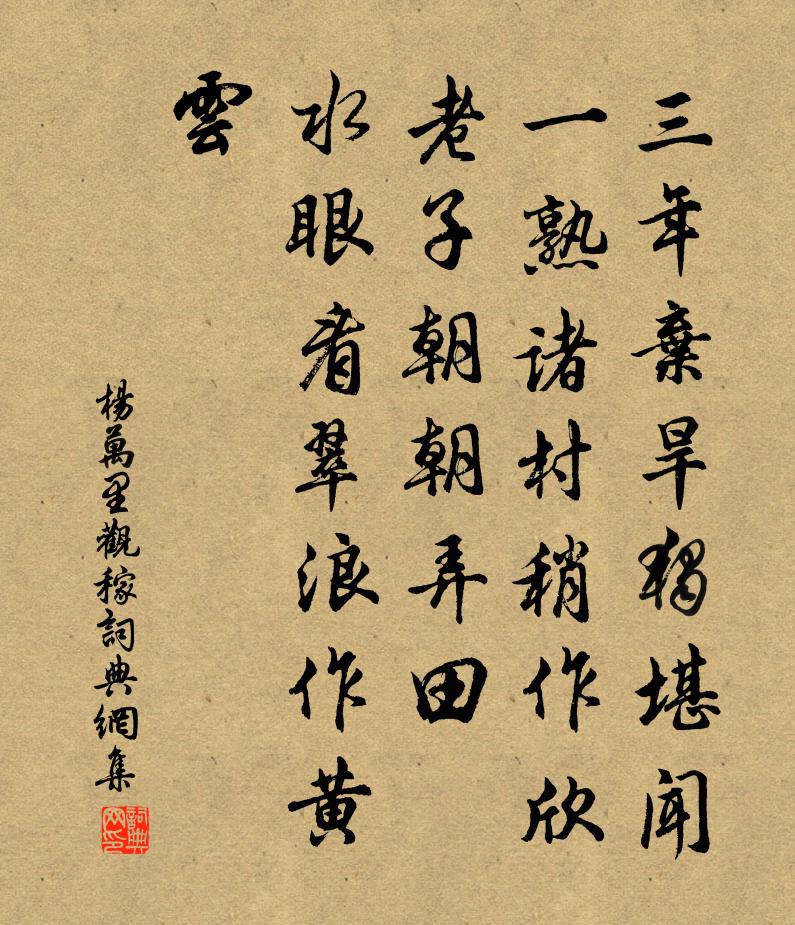 三年棄旱獨堪聞
一熟諸村稍作欣
老子朝朝弄田
水眼看翠浪作黄
雲
楊萬里觀稼詞典網集
詞典网印